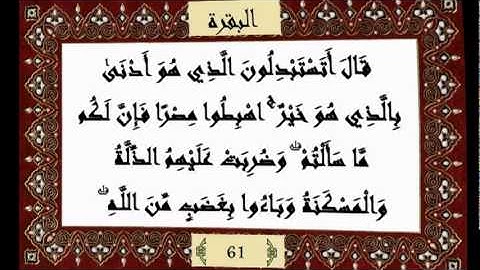 البقرة
قَالَ أَتَسْتَبْدِلُونَ الَّذِي هُوَ أَدْنَىٰ
بِالَّذِي هُوَ خَيْرٌ ۚ اهْبِطُوا مِصْرًا فَإِنَّ لَكُم
مَّا سَأَلْتُمْ ۗ وَضُرِبَتْ عَلَيْهِمُ الذِّلَّةُ
وَالْمَسْكَنَةُ وَبَاءُوا بِغَضَبٍ مِّنَ اللَّهِ ۗ
61